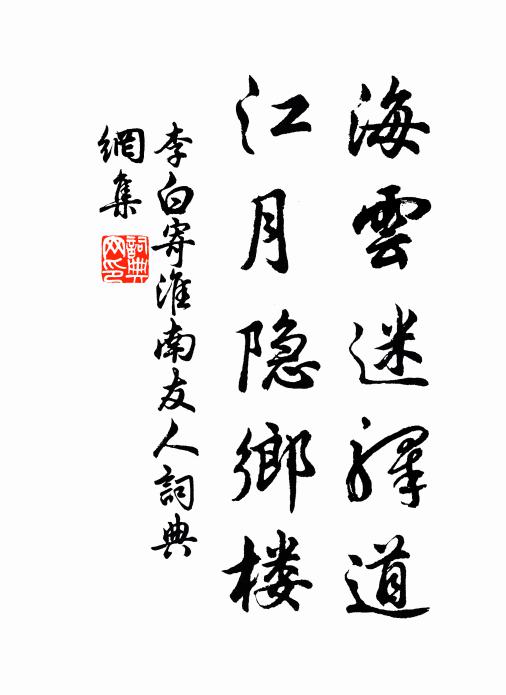 海雲迷驛道
江月隐鄉楼
李白寄淮南友人詞典
網集
詞典
网印